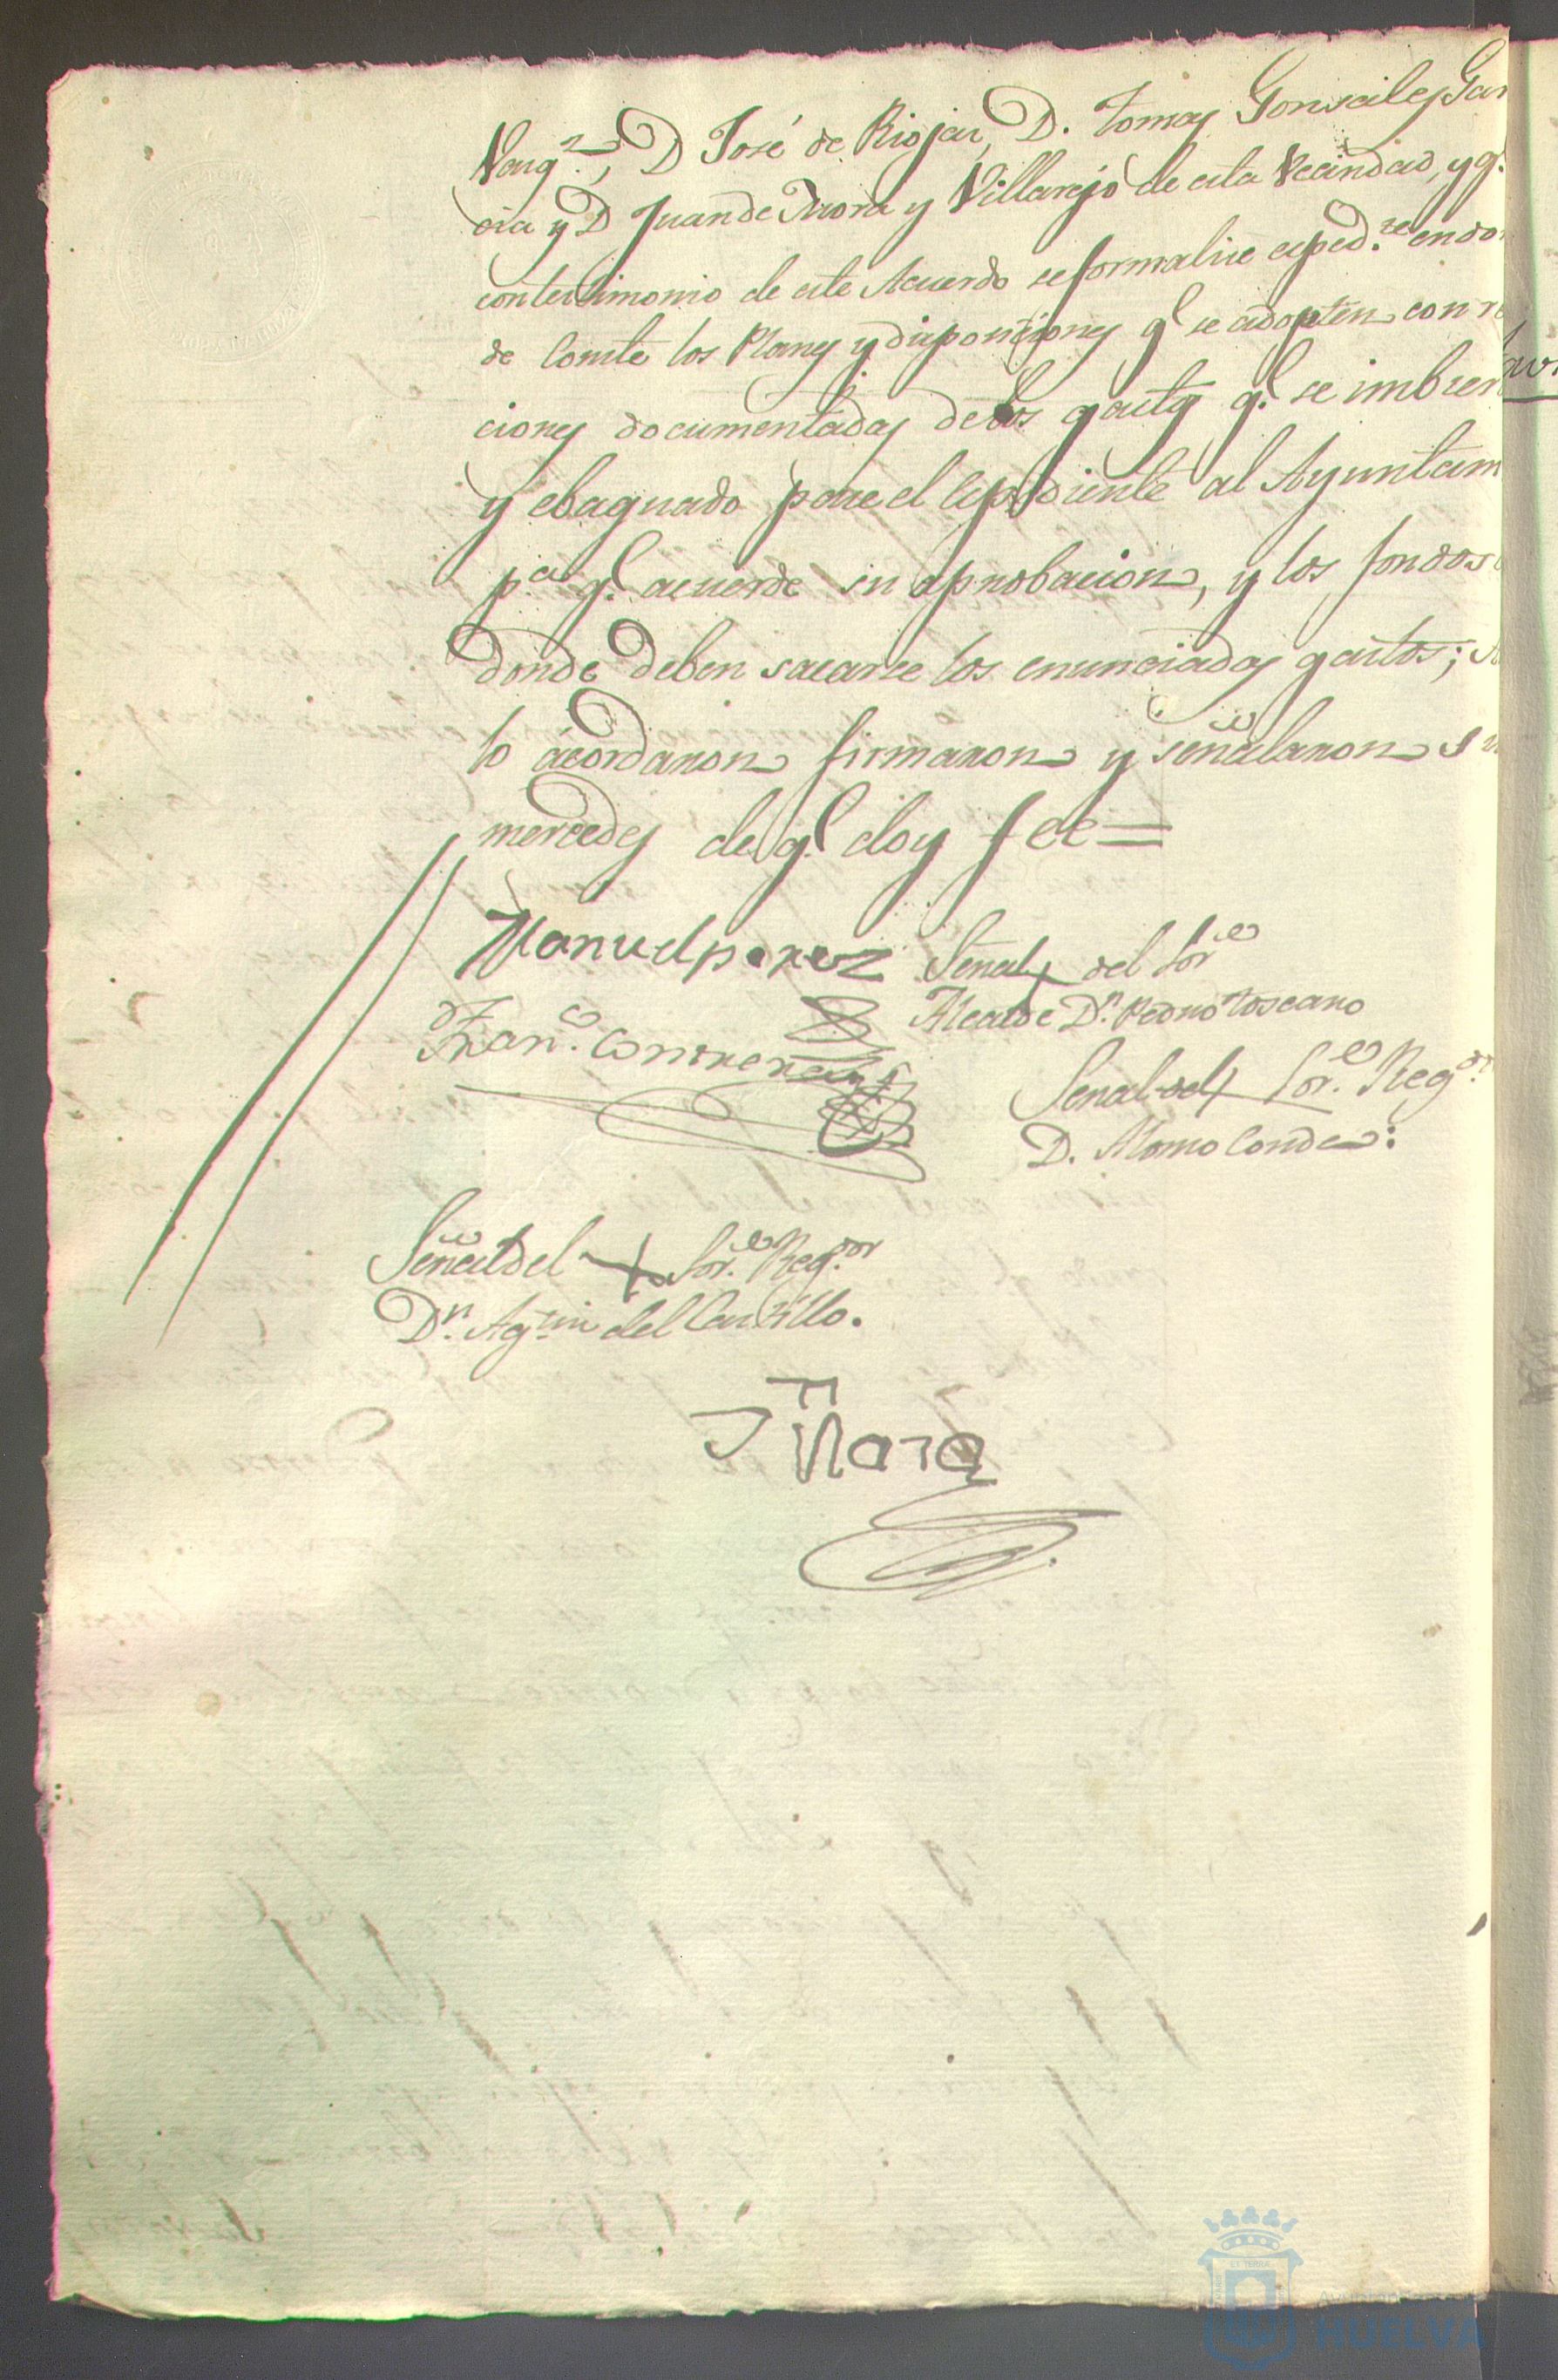 Varg.ˢ, D José de Rioja, D. Tomas Gonsales Gar
cia y D Juan de Mora y Villarejo de esta Vecindad, y q.
con testimonio de este Acuerdo se formalise exped.te en don
de Conste los Planes y disposiciones q.e se adopten con re
ciones documentadas de los gastos q.e se imbier
y ebaquado pase el expediente al Ayuntam
p.a q.e acuerde su aprobacion, y los fondos
donde deben sacarse los enunciados gastos;
lo acordaron firmaron y señalaron su
mercedes de q.e doy fee=
Manuel perez
Señal + del Sor.e
Alcalde D.n Pedro Toscano
Fran.co Contreras
Señal del + Sor.e Reg.or
D. Alonso Conde:
Señal del + Sor.e Reg.or
D.n Ag.tin del Castillo.
HUELVA